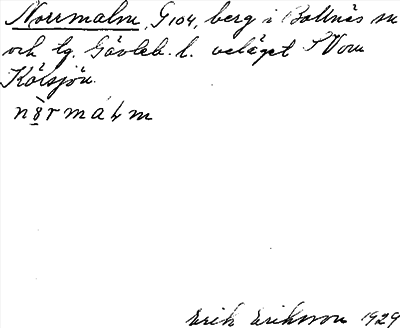 Norrmalm, G104, berg i Bollnäs sn
och tg. Gävleb. l. beläget S Vom
Kölsjön.
nörmalm
Erik Eriksson 1929